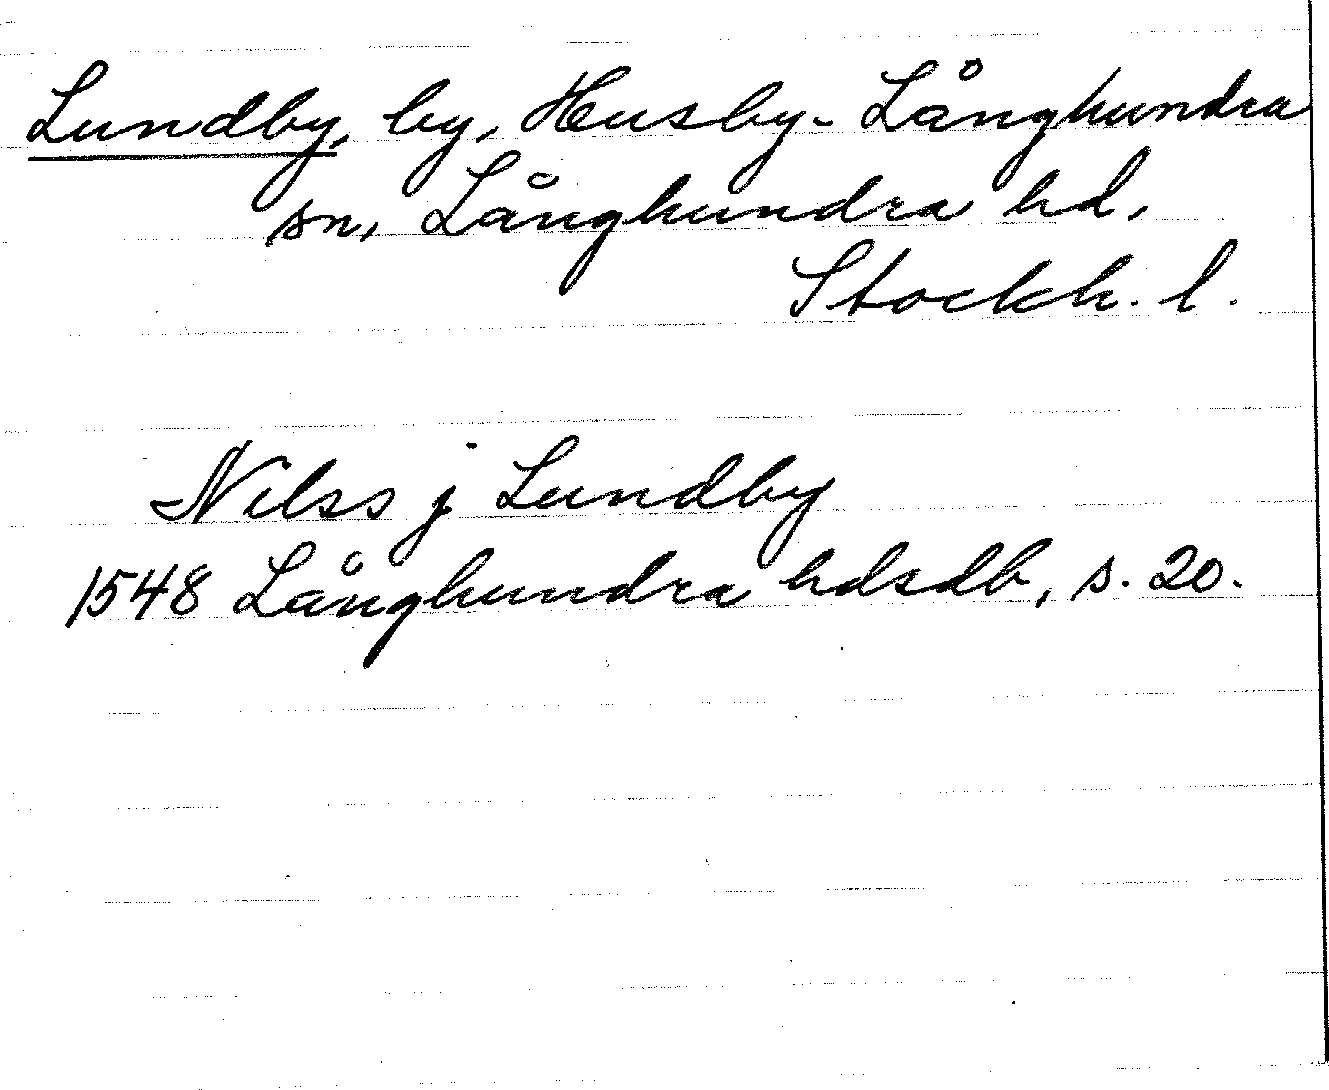 Lundby, by, Husby-Långhundra
sn, Långhundra hd,
Stockh. l.
Nilss j Lundby
1548 Långhundra hdsdb, s. 20.